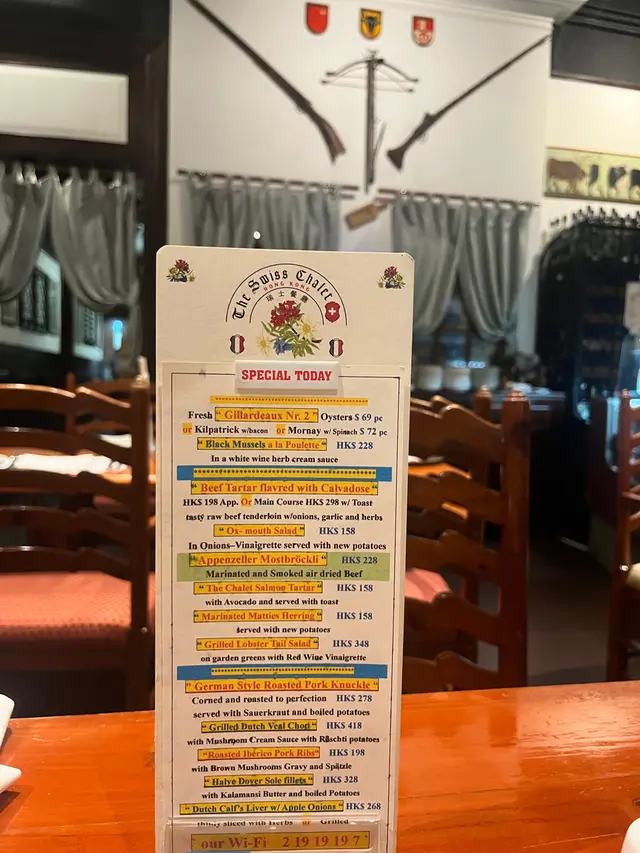 The Swiss Chalet
HONG KONG
瑞士餐廳
SPECIAL TODAY
Fresh " Gillardeaux Nr. 2 " Oysters $ 69 pc
or Kilpatrick w/bacon or Mornay w/ Spinach $ 72 pc
" Black Mussels a la Poulette " HK$ 228
In a white wine herb cream sauce
" Beef Tartar flavred with Calvadose "
HK$ 198 App. Or Main Course HK$ 298 w/ Toast
tasty raw beef tenderloin w/onions, garlic and herbs
" Ox- mouth Salad " HK$ 158
In Onions–Vinaigrette served with new potatoes
" Appenzeller Mostbröckli " HK$ 228
Marinated and Smoked air dried Beef
" The Chalet Salmon Tartar " HK$ 158
with Avocado and served with toast
" Marinated Matties Herring " HK$ 158
served with new potatoes
" Grilled Lobster Tail Salad " HK$ 348
on garden greens with Red Wine Vinaigrette
" German Style Roasted Pork Knuckle "
Corned and roasted to perfection HK$ 278
served with Sauerkraut and boiled potatoes
" Grilled Dutch Veal Chop " HK$ 418
with Mushroom Cream Sauce with Röschti potatoes
"Roasted Ibérico Pork Ribs" HK$ 198
with Brown Mushrooms Gravy and Spätzle
" Halve Dover Sole fillets " HK$ 328
with Kalamansi Butter and boiled Potatoes
" Dutch Calf's Liver w/ Apple Onions " HK$ 268
thinly sliced with Herbs or Grilled
our Wi-Fi 2 19 19 19 7